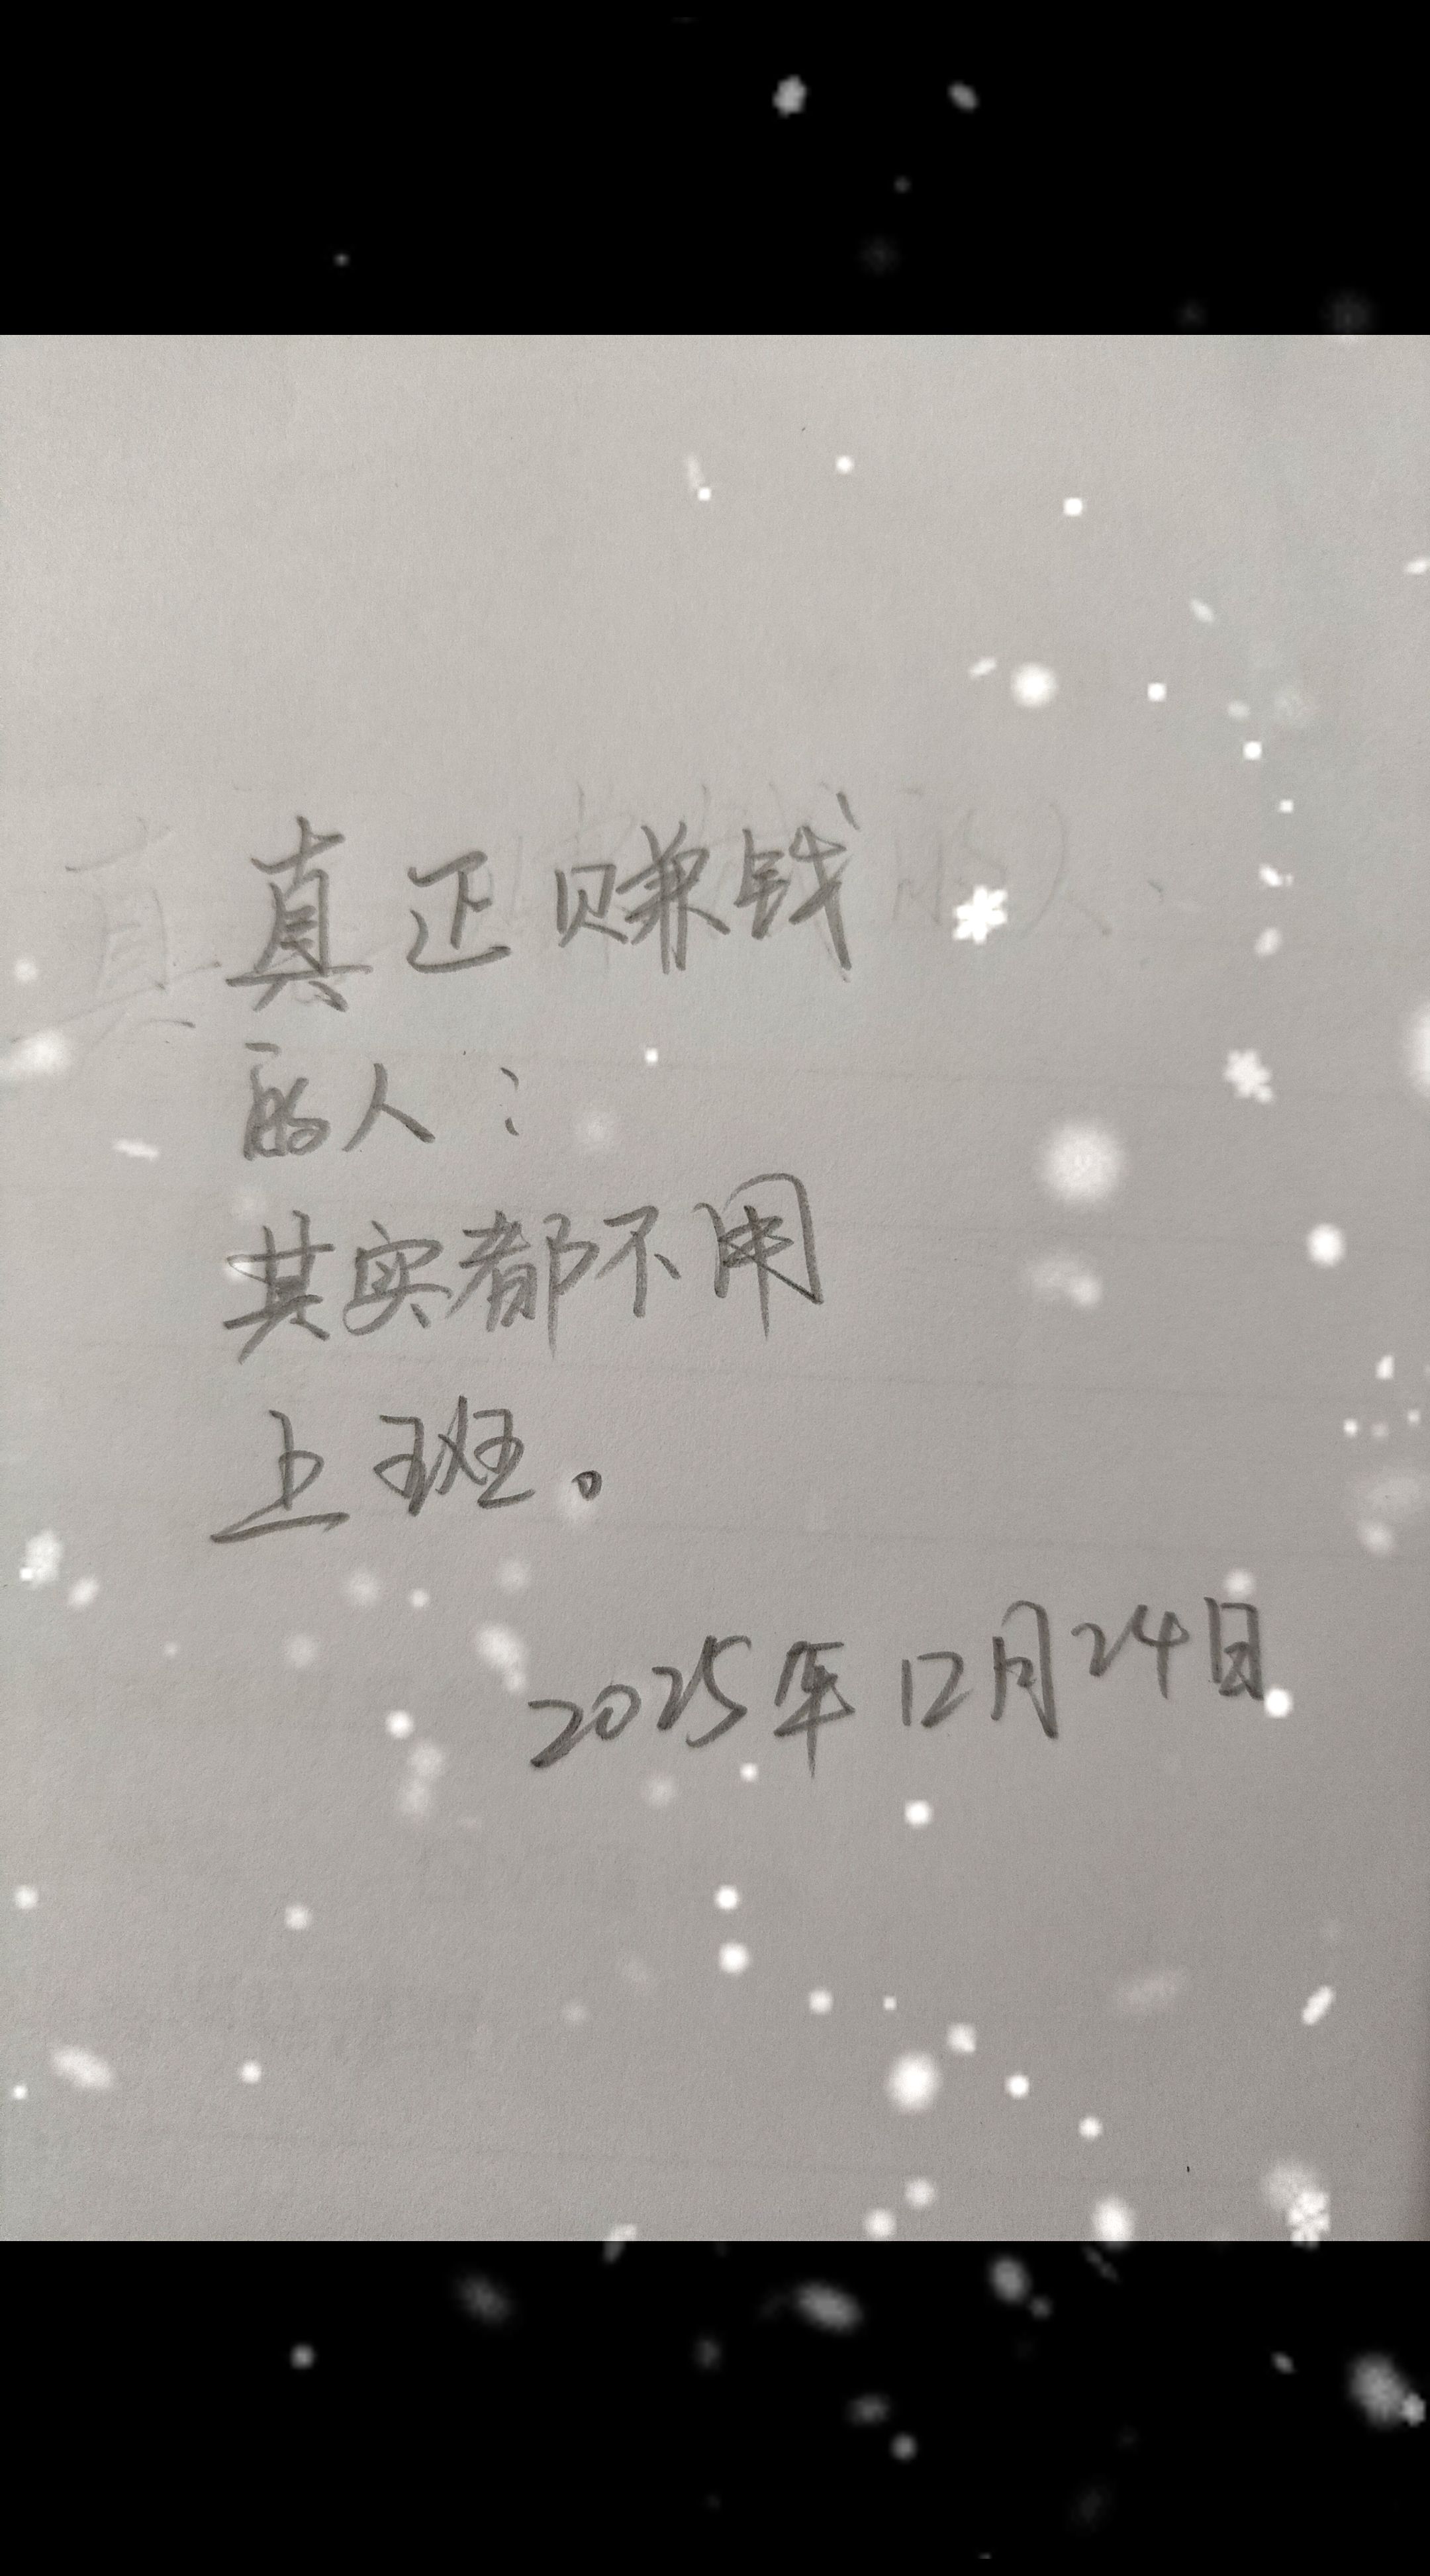 真正赚钱
的人：
其实都不用
上班。
2025年12月24日